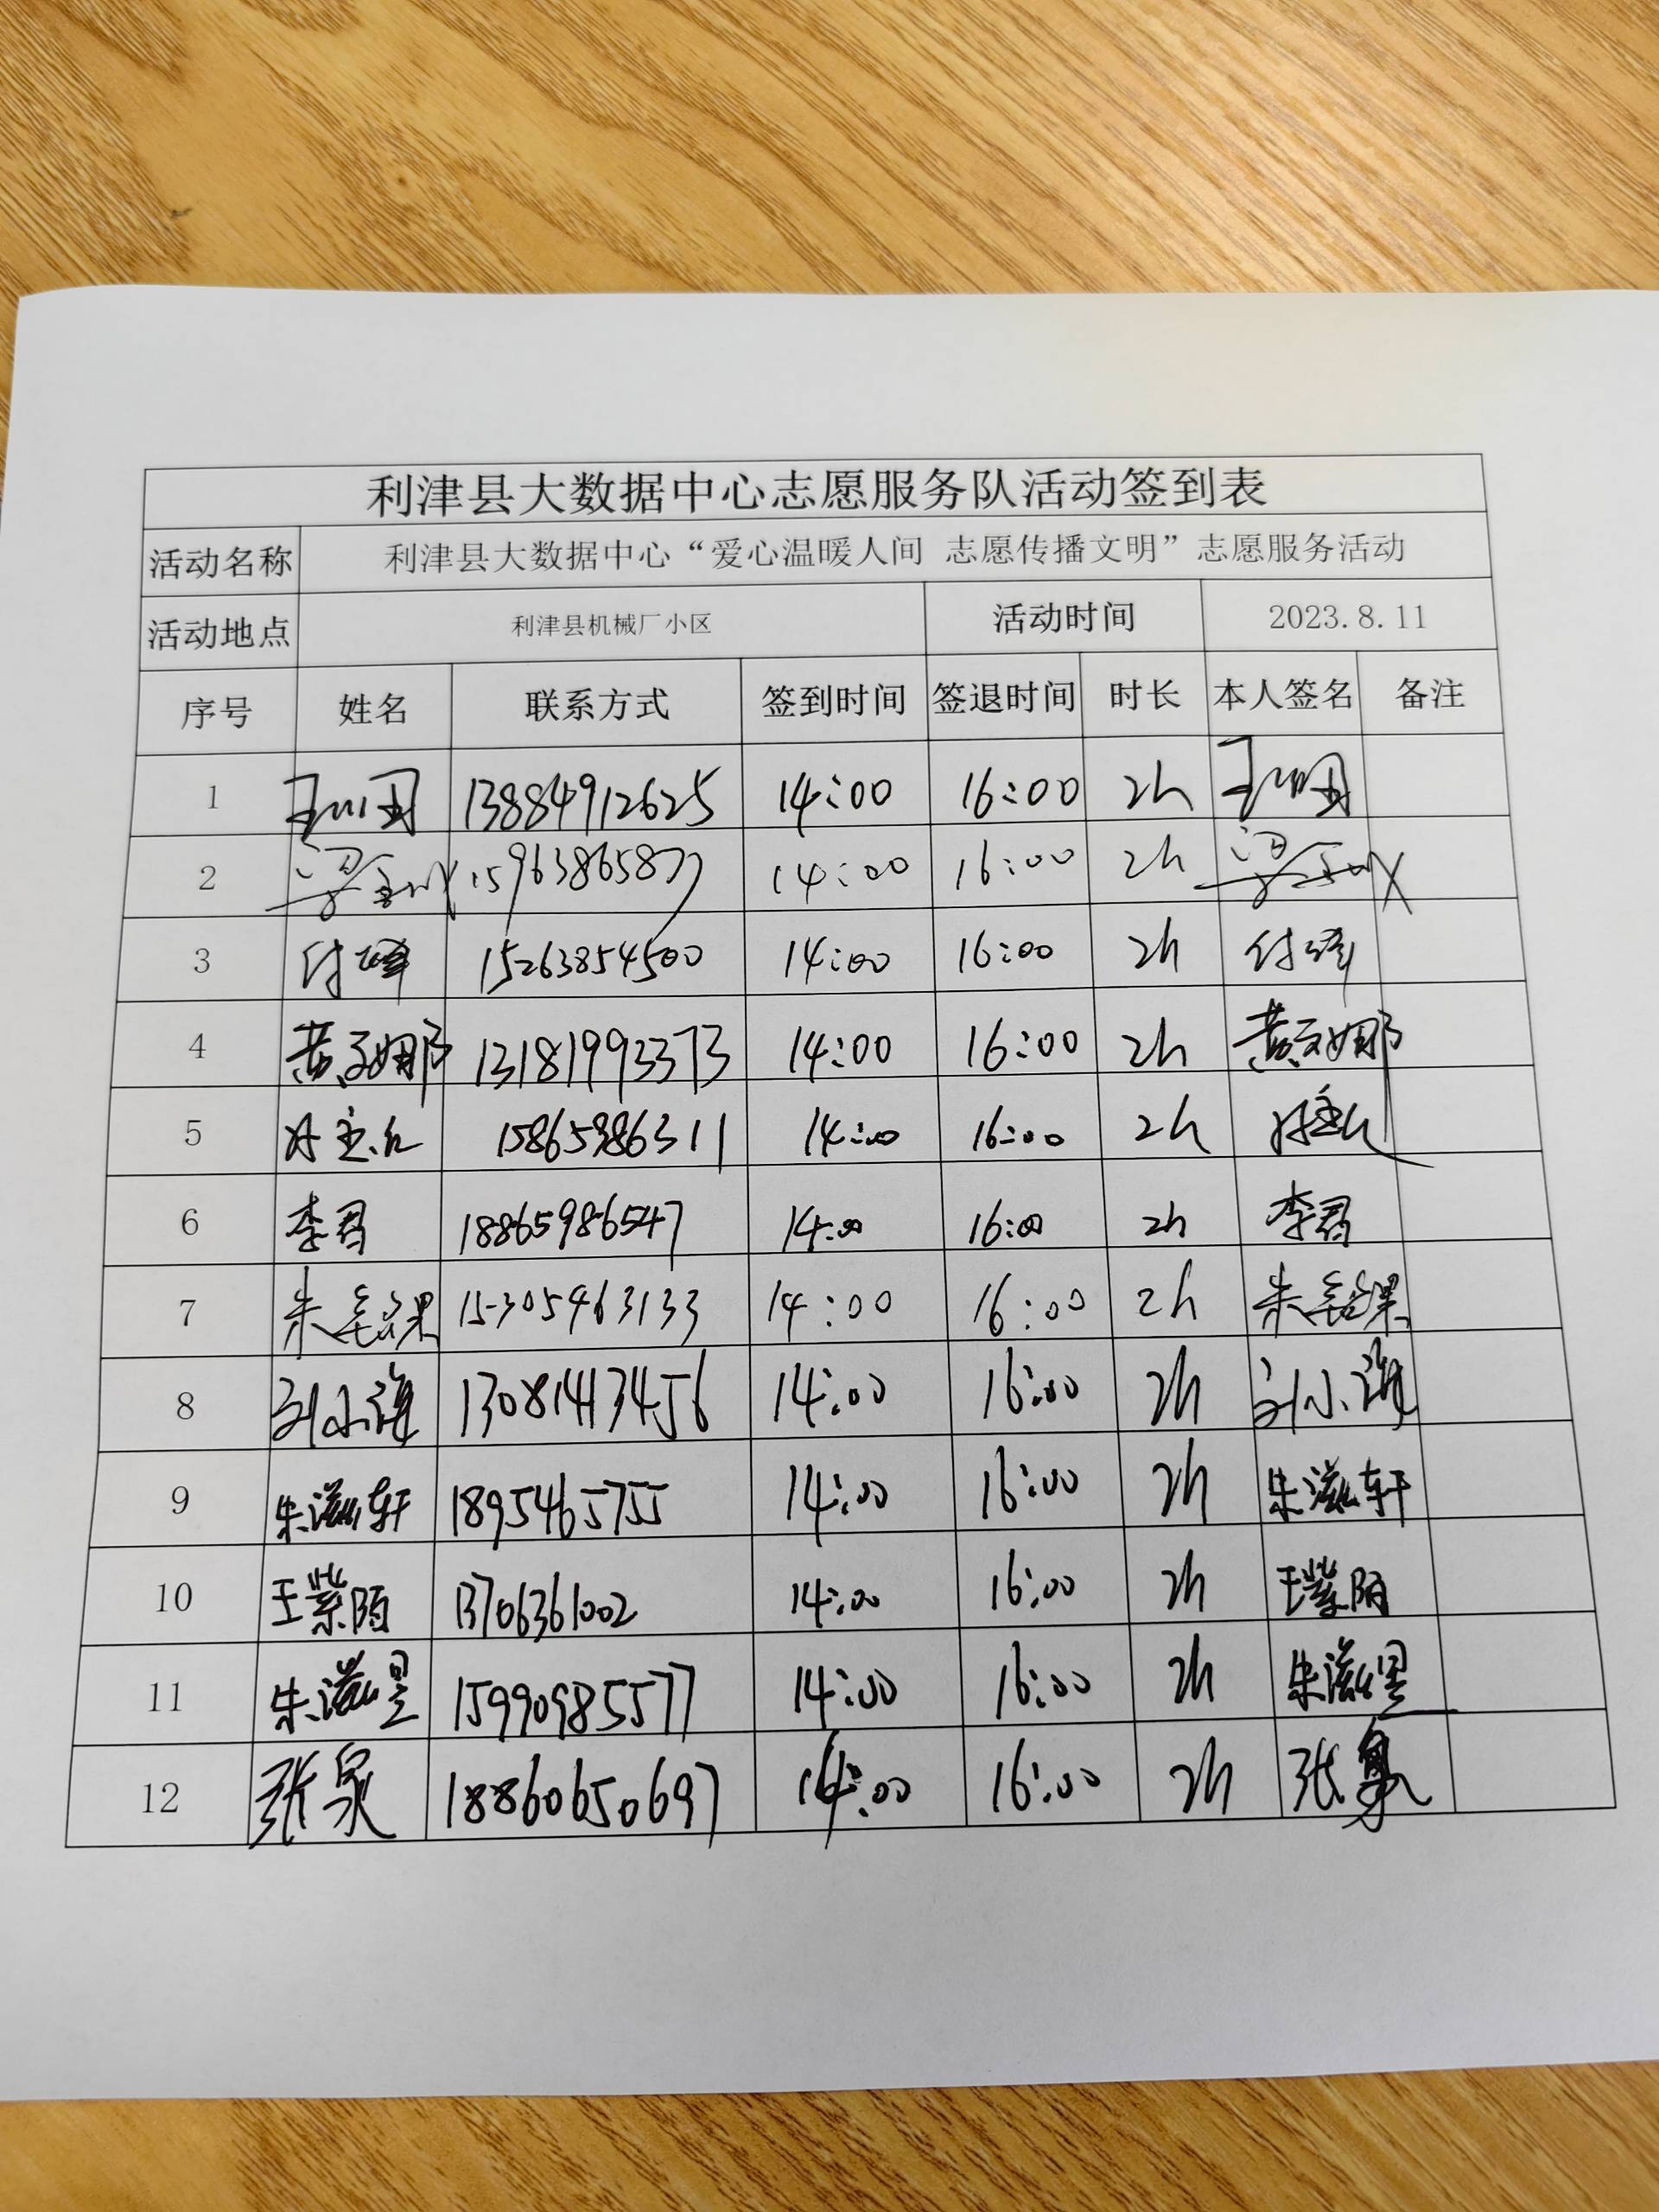 利津县大数据中心志愿服务队活动签到表
活动名称 利津县大数据中心“爱心温暖人间 志愿传播文明”志愿服务活动
活动地点 利津县机械厂小区 活动时间 2023.8.11
序号 姓名 联系方式 签到时间 签退时间 时长 本人签名 备注
1 13884912625 14:00 16:00 2h
2 15963865877 14:00 16:00 2h
3 付峰 15263854500 14:00 16:00 2h 付峰
4 黄文娜 13181993373 14:00 16:00 2h 黄文娜
5 15865986311 14:00 16:00 2h
6 李君 18865986547 14:00 16:00 2h 李君
7 朱 15305463133 14:00 16:00 2h 朱
8 刘小 13081413456 14:00 16:00 2h 刘小
9 朱滋轩 18954657555 14:00 16:00 2h 朱滋轩
10 王紫陌 13706361002 14:00 16:00 2h 王紫陌
11 朱滋昱 15990985577 14:00 16:00 2h 朱滋昱
12 张泉 18860650697 14:00 16:00 2h 张泉